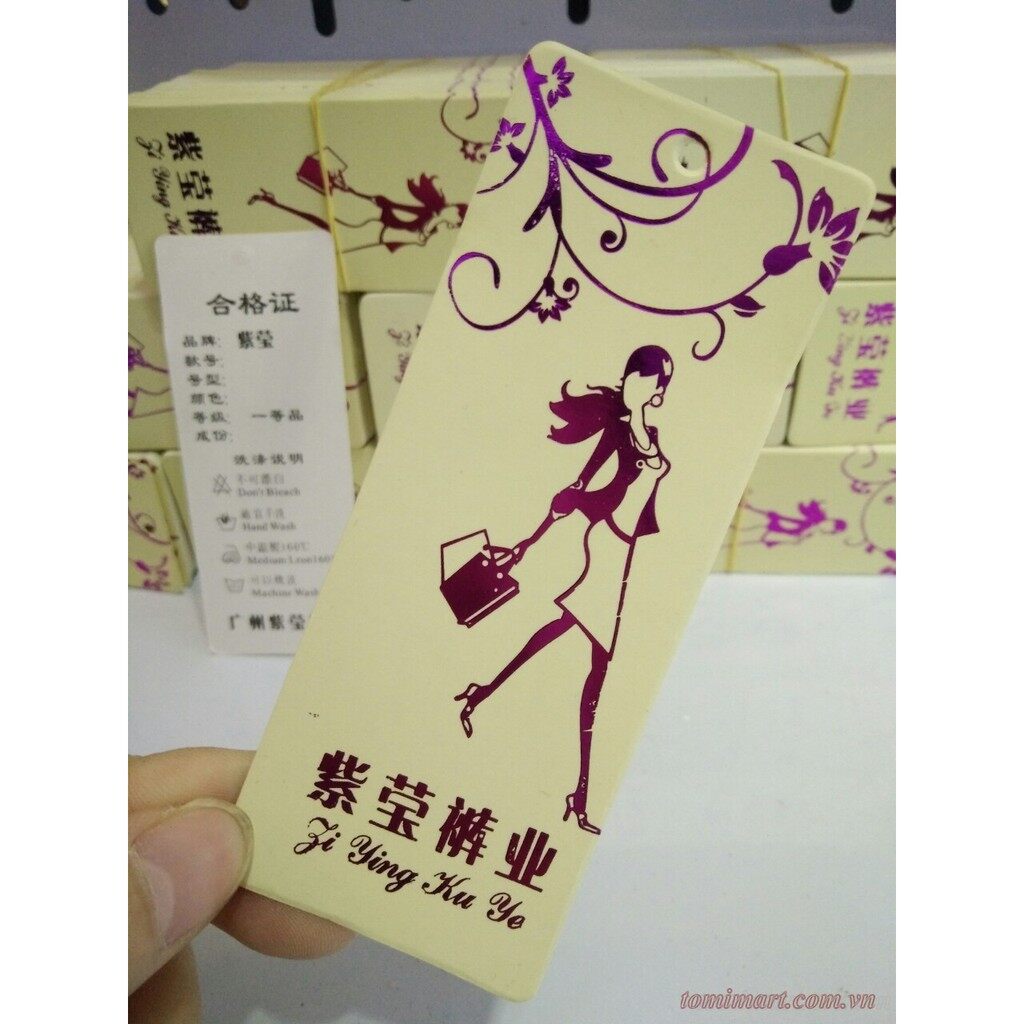 紫莹裤业
Zi Ying Ku Ye
合格证
品牌: 紫莹
款号:
号型:
颜色:
等级: 一等品
成份:
洗涤说明
不可漂白
Don't Bleach
Hand Wash
Medium Lron160
可以机洗
Machine Wash
广州紫莹
紫莹裤
Zi Ying
紫莹裤业
Zi Ying Ku Ye
tomimart.com.vn